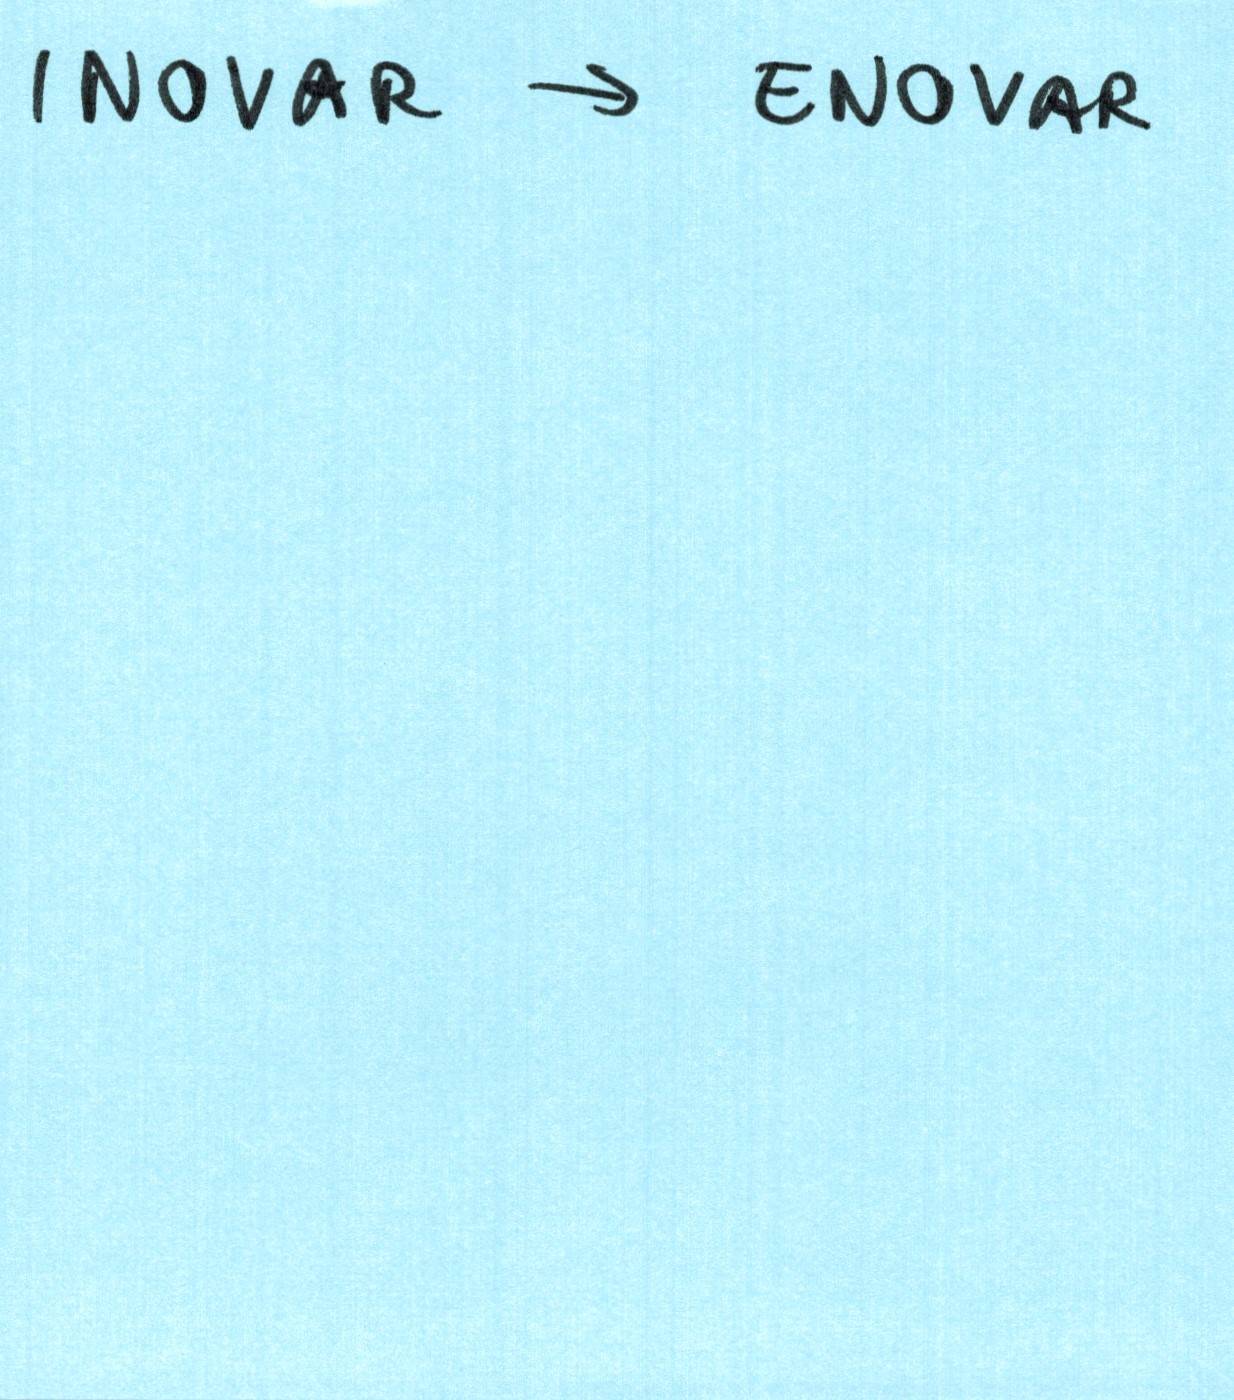 INOVAR → ENOVAR